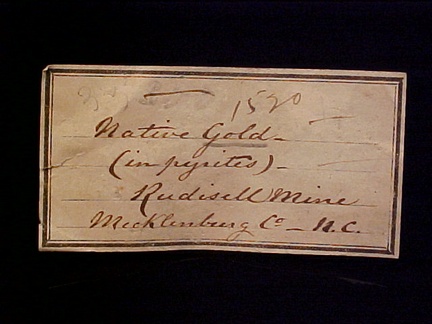 1520
Native Gold -
(in pyrites) -
Rudisell Mine
Mecklenburg Co - N.C.